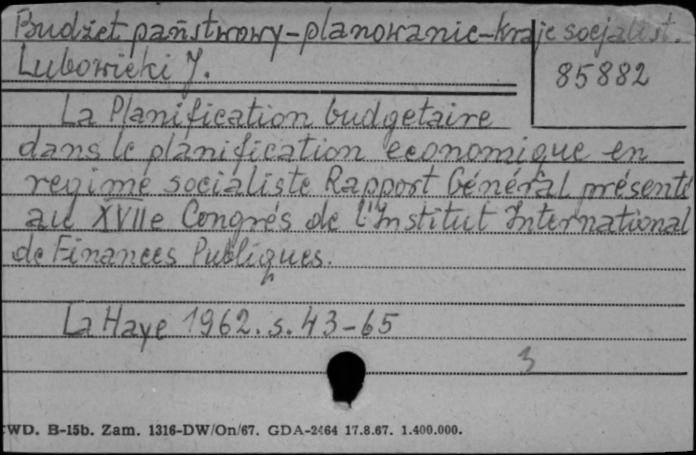 Budżet państwowy-planowanie-kraje socjalist.
Lubowicki J.
85882
La Planification budgetaire
dans le planification economique en
regime socialiste Rapport Général présenté
au XVIIe Congrés de l'Institut International
de Finances Publiques.
La Haye 1962. s. 43-65
3
CWD. B-15b. Zam. 1316-DW/On/67. GDA-2464 17.8.67. 1.400.000.